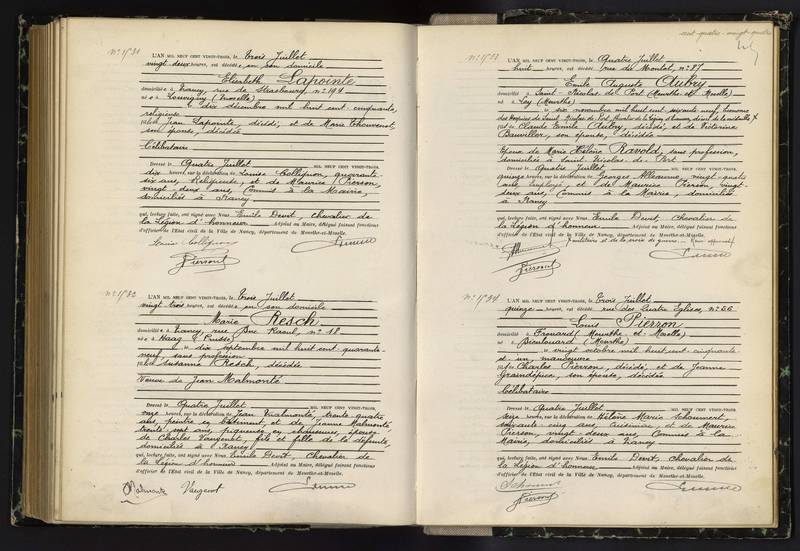 L'AN MIL NEUF CENT VINGT-TROIS, le Trois Juillet
vingt deux heures, est décédée en son domicile
Elisabeth Lapointe
domiciliée à Nancy, rue de Strasbourg, n° 194
née à Louvigny (Moselle)
le décembre mil huit cent cinquante
religieuse
fille de Jean Lapointe, décédé, et de Marie Thouvenot,
son épouse, décédée
Célibataire
DRESSÉ LE Quatre Juillet MIL NEUF CENT VINGT-TROIS,
dix heures, sur la déclaration de Louise Collignon, quarante
six ans, Religieuse et de Maurice Pierson,
vingt deux ans, Commis à la Mairie,
domiciliés à Nancy
qui, lecture faite, ont signé avec Nous Emile Devit, Chevalier de
la Légion d'honneur Adjoint au Maire, délégué faisant fonctions
d'officier de l'Etat civil de la Ville de Nancy, département de Meurthe-et-Moselle.
Louise Collignon
Pierson
L'AN MIL NEUF CENT VINGT-TROIS, le Trois Juillet
vingt trois heures, est décédée en son domicile
Marie Resch
domiciliée à Nancy, rue Raoul, n° 18
née à Haag (Prusse)
le dix septembre mil huit cent quarante-
neuf sans profession
fille de Susanne Resch, décédée
Veuve de Jean Malmonté
DRESSÉ LE Quatre Juillet MIL NEUF CENT VINGT-TROIS,
onze heures, sur la déclaration de Jean Malmonté, trente quatre
ans, peintre en bâtiment et de Jeanne Malmonté
trente sept ans, piqueuse en chaussures, épouse
de Charles Vangenot, fils et fille de la défunte,
domiciliés à Nancy
qui, lecture faite, ont signé avec Nous Emile Devit, Chevalier de
la Légion d'honneur Adjoint au Maire, délégué faisant fonctions
d'officier de l'Etat civil de la Ville de Nancy, département de Meurthe-et-Moselle.
Malmonté
L'AN MIL NEUF CENT VINGT-TROIS, le Quatre Juillet
huit heures, est décédé rue du Montet, n° 87
Emile Auguste Aubry
domicilié à Saint-Nicolas de Port (Meurthe et Moselle)
né à Loy (Meurthe)
le six novembre mil huit cent soixante neuf, économe
des Hospices de Saint Nicolas de Port, Chevalier de la Légion d'honneur, décoré de la médaille X
fils de Claude Emile Aubry, décédé, et de Victorine
son épouse, décédée
Epoux de Marie Hélène Ravold, sans profession,
domiciliée à Saint-Nicolas-de-Port
DRESSÉ LE Quatre Juillet MIL NEUF CENT VINGT-TROIS,
quinze heures, sur la déclaration de Georges Allemane, vingt-quatre
ans, employé, et de Maurice Pierson, vingt-
deux ans, Commis à la Mairie, domiciliés
à Nancy
qui, lecture faite, ont signé avec Nous Emile Devit Chevalier de
la Légion d'honneur Adjoint au Maire, délégué faisant fonctions
d'officier de l'Etat civil de la Ville de Nancy, département de Meurthe-et-Moselle.
X militaire et de la croix de guerre
Pierson
L'AN MIL NEUF CENT VINGT-TROIS, le Trois Juillet
quinze heures, est décédé rue des Quatre Eglises, n° 56
Louis Pierron
domicilié à Frouard (Meurthe et Moselle)
né à Bicalouard (Meurthe)
le vingt octobre mil huit cent cinquante
et un manoeuvre
fils de Charles Pierron, décédé, et de Jeanne
son épouse, décédée
Célibataire
DRESSÉ LE Quatre Juillet MIL NEUF CENT VINGT-TROIS,
seize heures, sur la déclaration de Hélène Marie
soixante cinq ans, cuisinière, et de Maurice
Pierson, vingt deux ans, Commis à la
Mairie, domiciliés à Nancy
qui, lecture faite, ont signé avec Nous Emile Devit, chevalier de
la Légion d'honneur Adjoint au Maire, délégué faisant fonctions
d'officier de l'Etat civil de la Ville de Nancy, département de Meurthe-et-Moselle.
Pierson